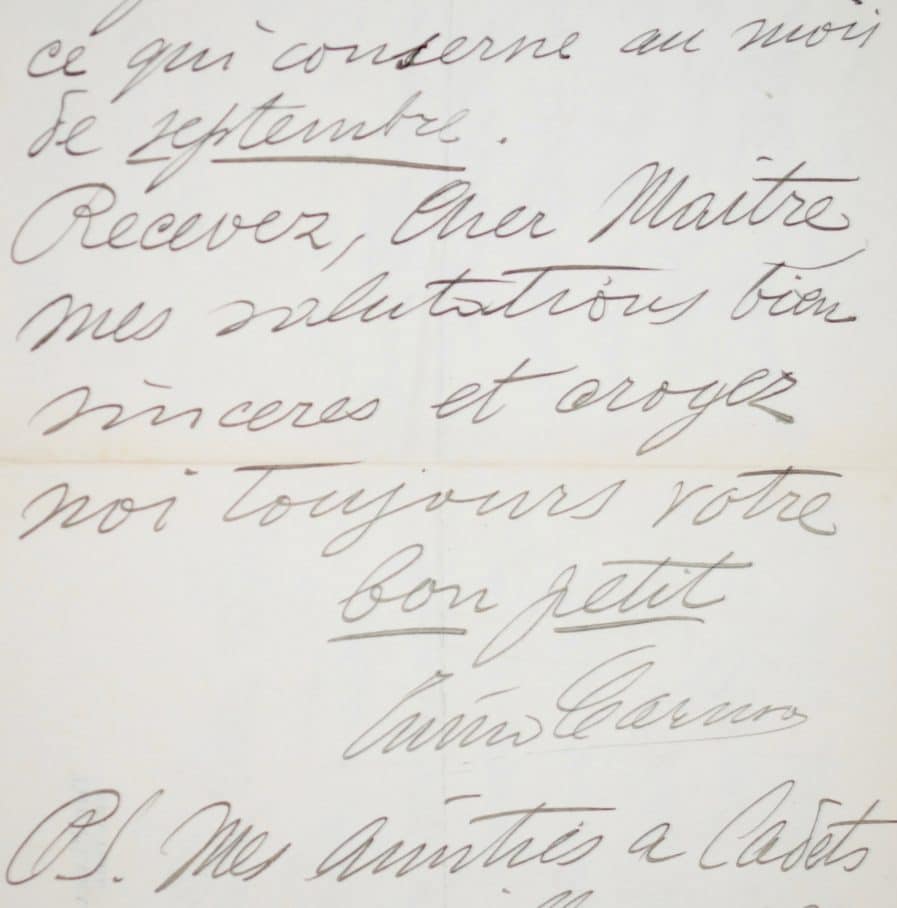 ce qui conserne au mois
de septembre.
Recevez, Cher Maitre
mes salutations bien
sinceres et croyez
moi toujours votre
bon petit
PS. Mes amitiés a Cadets